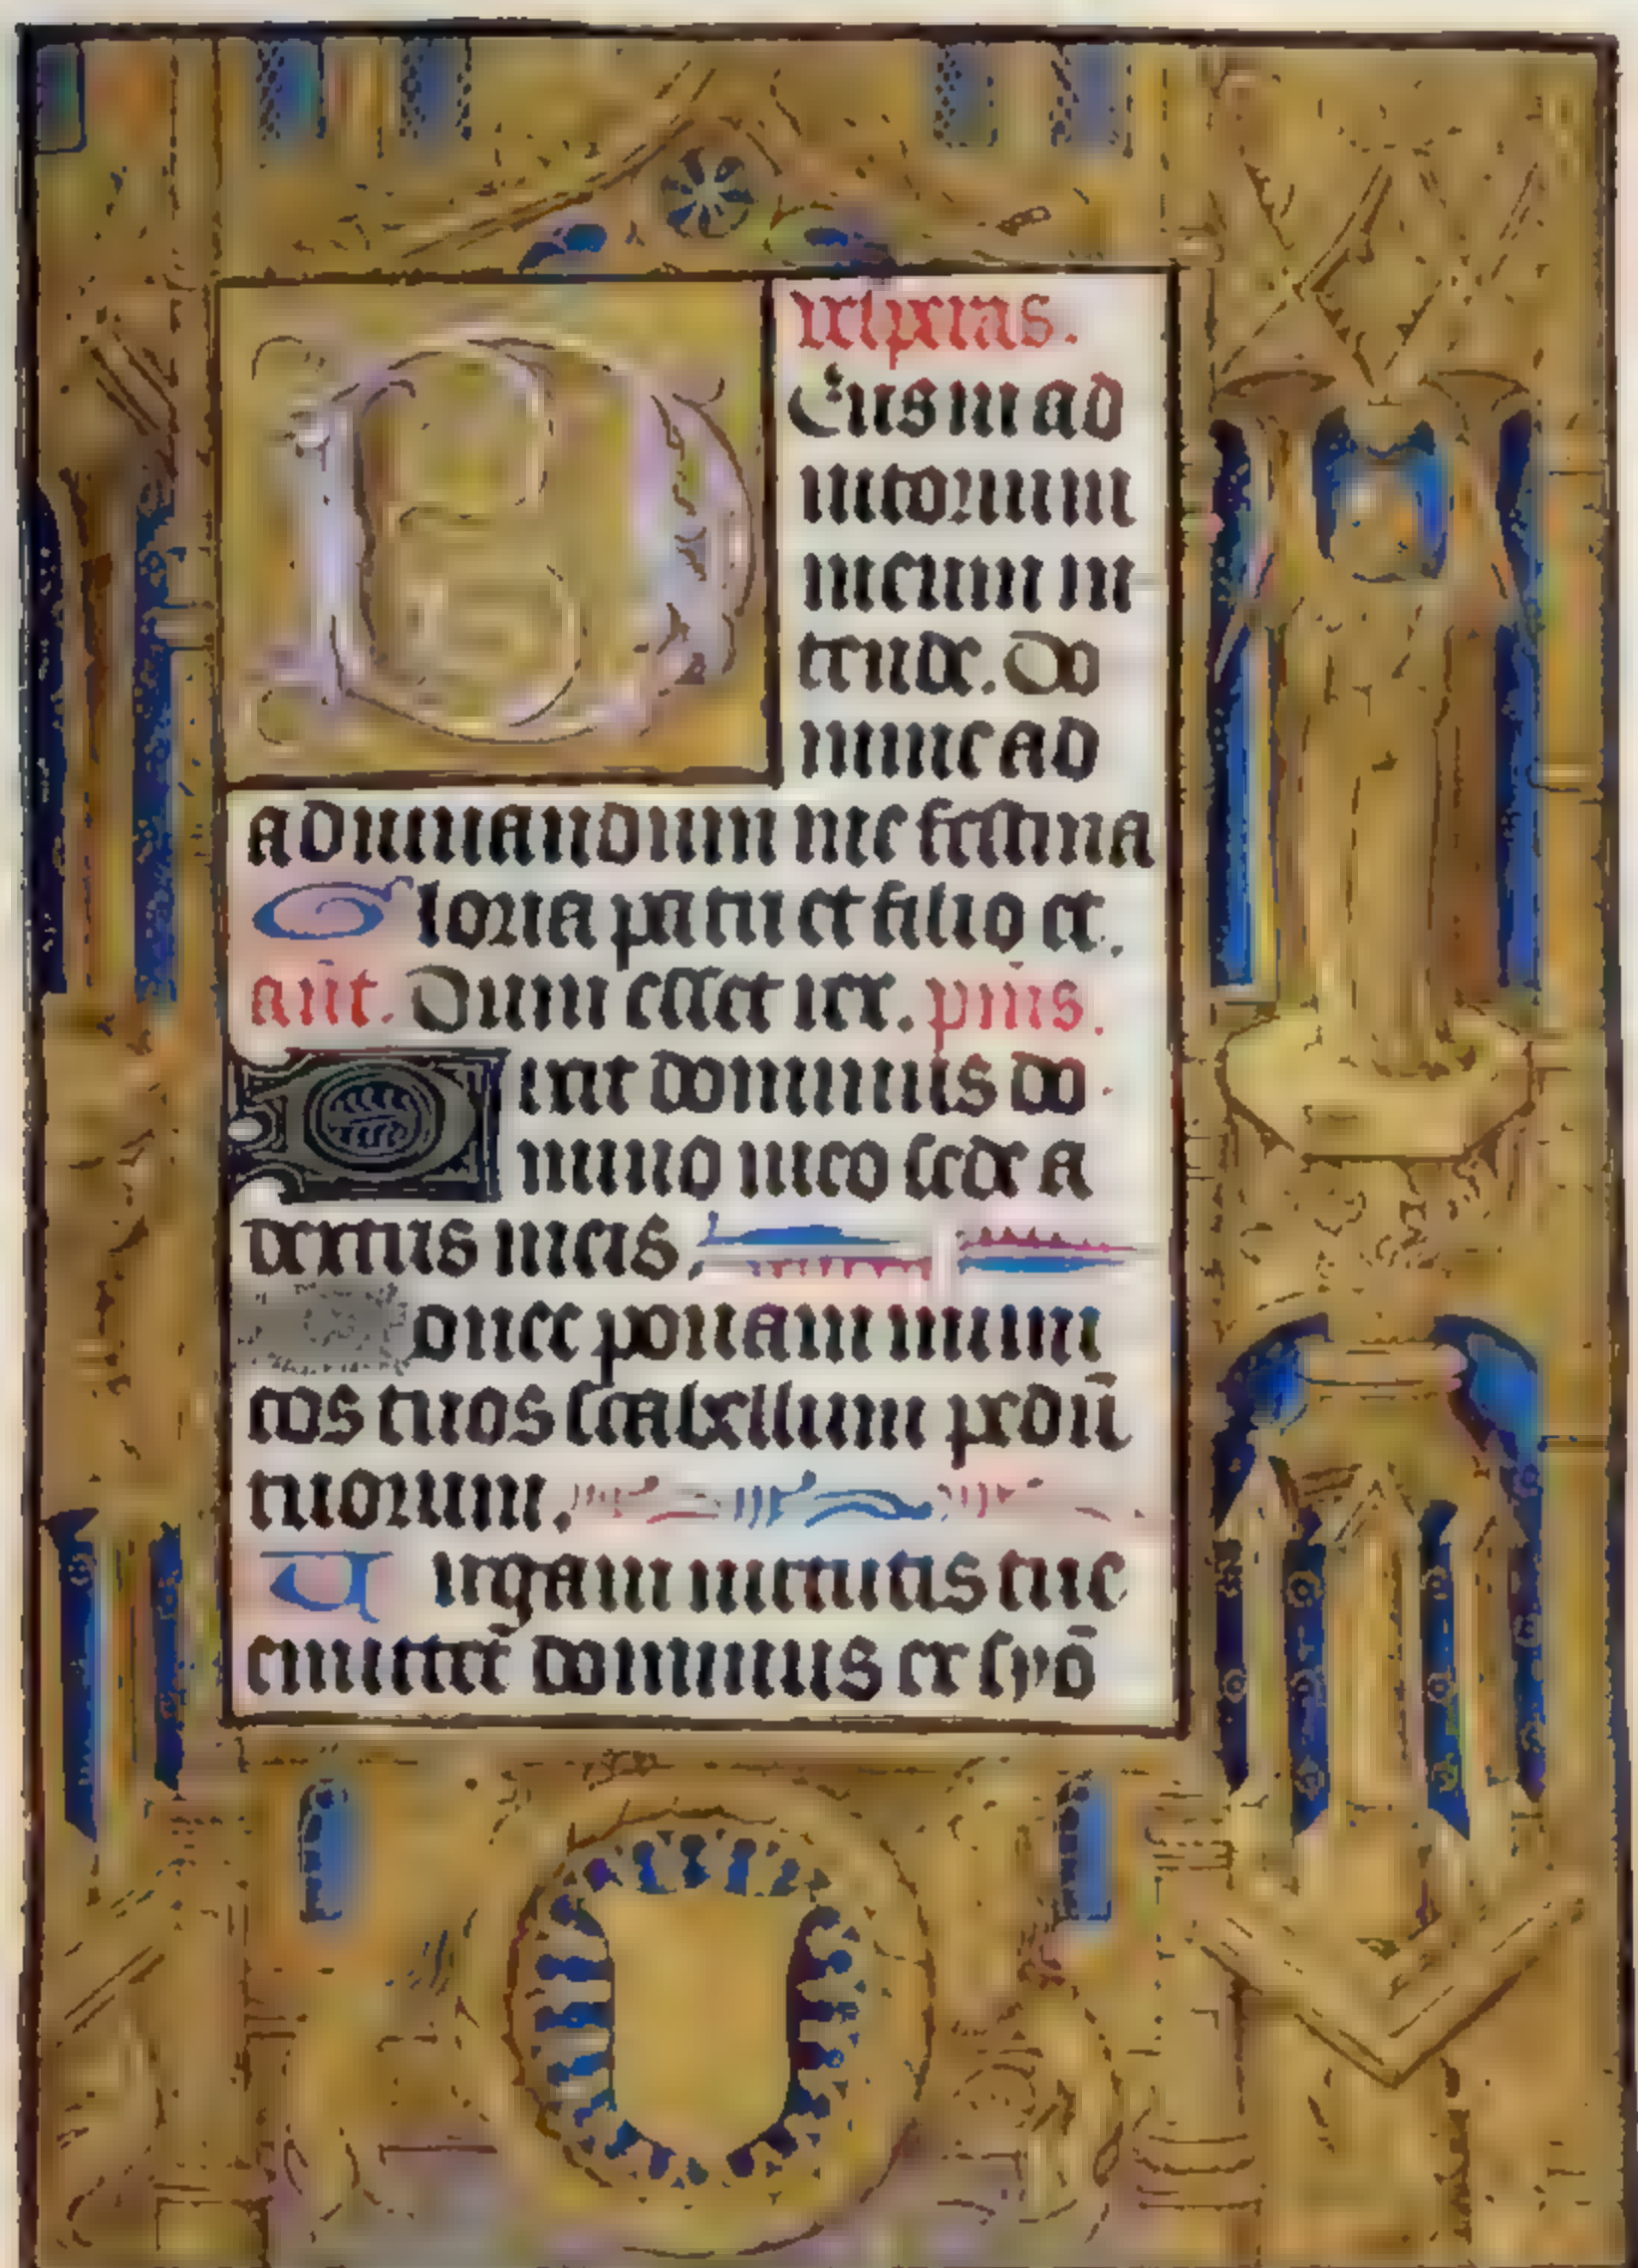 D
uesperas.
Eus in ad
iutorium
meum in
tende. Do
mine ad
adiuuandum me festina
Gloria patri et filio et.
añt. Dum esset rex. p̄us.
Dixit dominus do
mino meo sede a
dextris meis.
Donec ponam inimi
cos tuos scabellum pedū
tuorum.
Uirgam uirtutis tue
emittet dominus ex syō